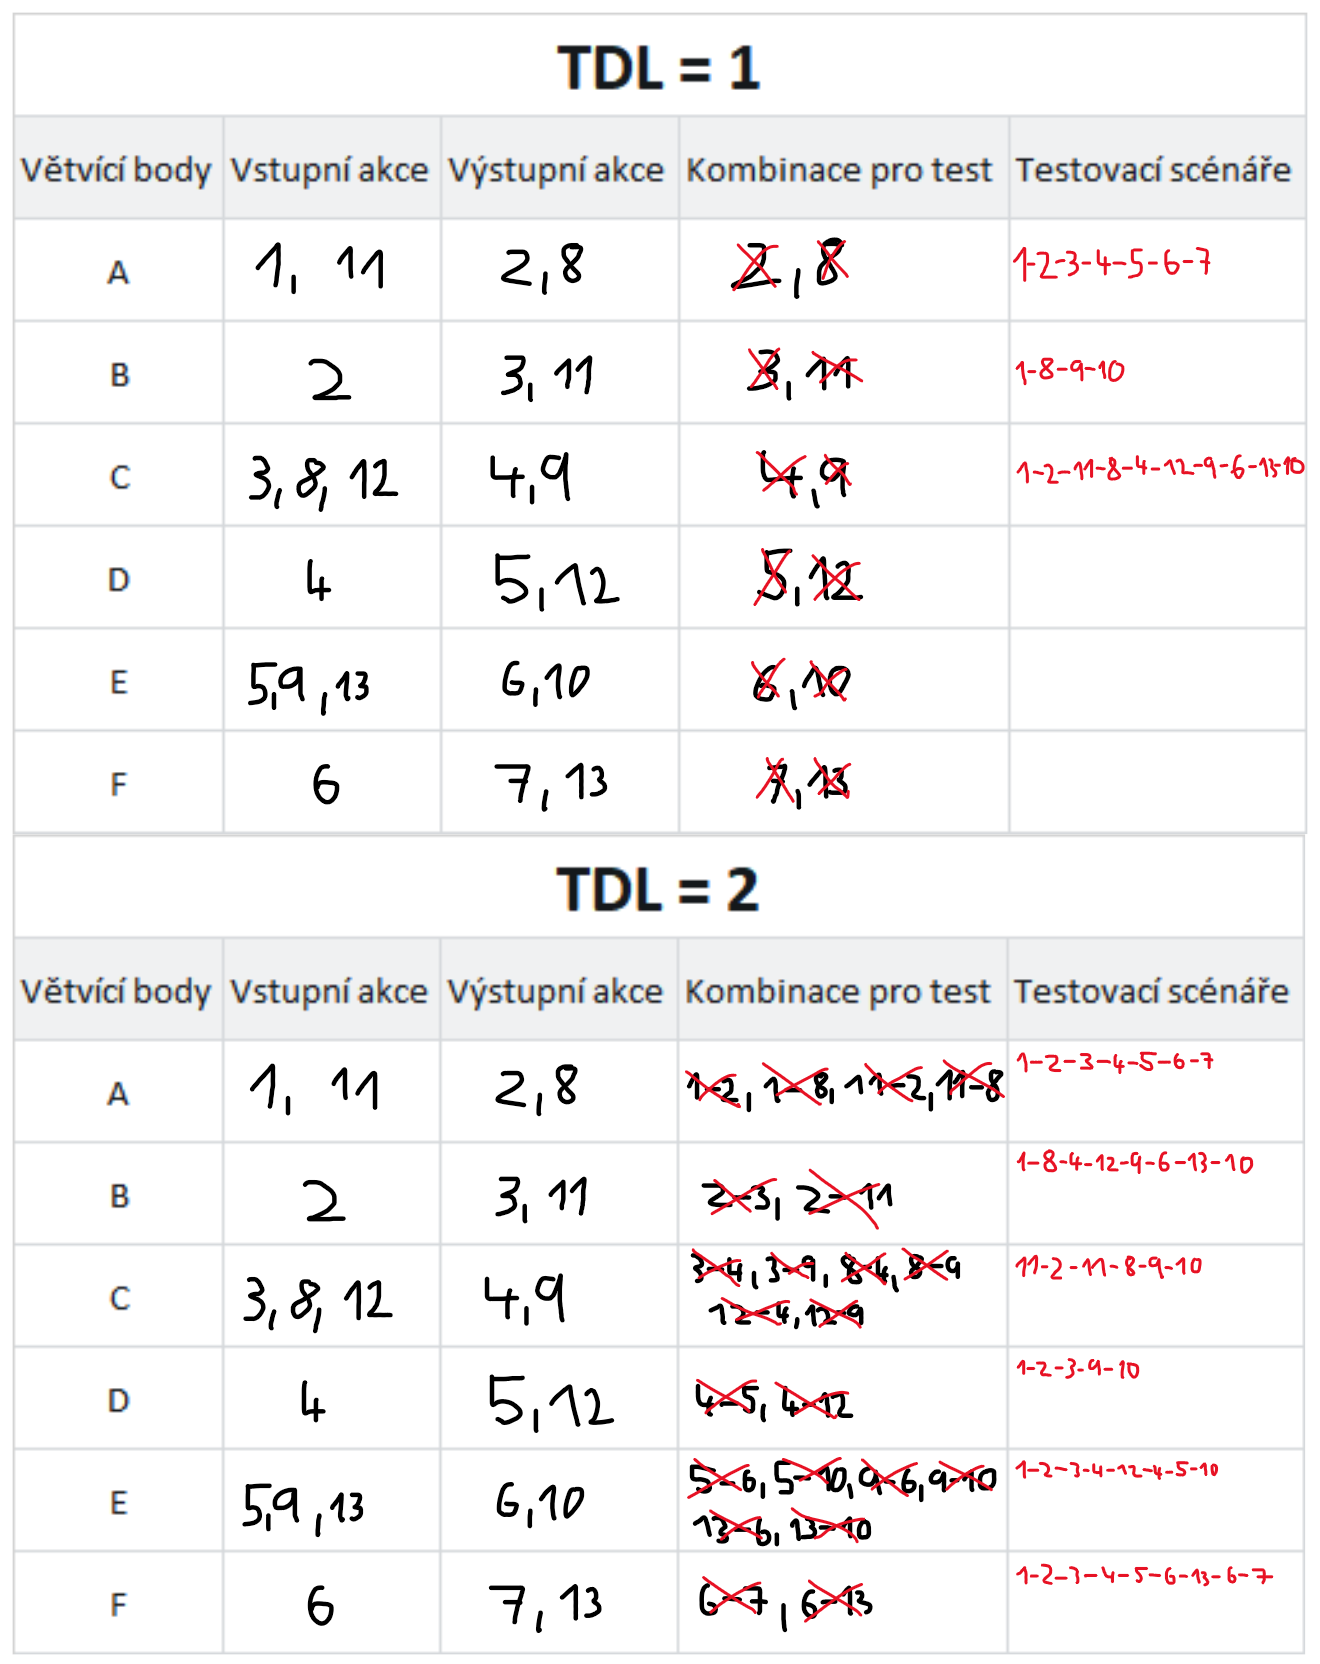 TDL = 1
Větvící body Vstupní akce Výstupní akce Kombinace pro test Testovací scénáře
A 1, 11 2,8 2,8 1-2-3-4-5-6-7
B 2 3,11 3,11 1-8-9-10
C 3,8,12 4,9 4,9 1-2-11-8-4-12-9-6-13-10
D 4 5,12 5,12
E 5,9,13 6,10 6,10
F 6 7,13 7,13
TDL = 2
Větvící body Vstupní akce Výstupní akce Kombinace pro test Testovací scénáře
A 1, 11 2,8 1-2, 1-8, 11-2, 11-8 1-2-3-4-5-6-7
B 2 3, 11 2-3, 2-11 1-8-4-12-9-6-13-10
C 3,8,12 4,9 3-4, 3-9, 8-4, 8-9 11-2-11-8-9-10
12-4, 12-9
D 4 5,12 4-5, 4-12 1-2-3-9-10
E 5,9,13 6,10 5-6, 5-10, 9-6, 9-10 1-2-3-4-12-4-5-10
13-6, 13-10
F 6 7,13 6-7, 6-13 1-2-3-4-5-6-13-6-7